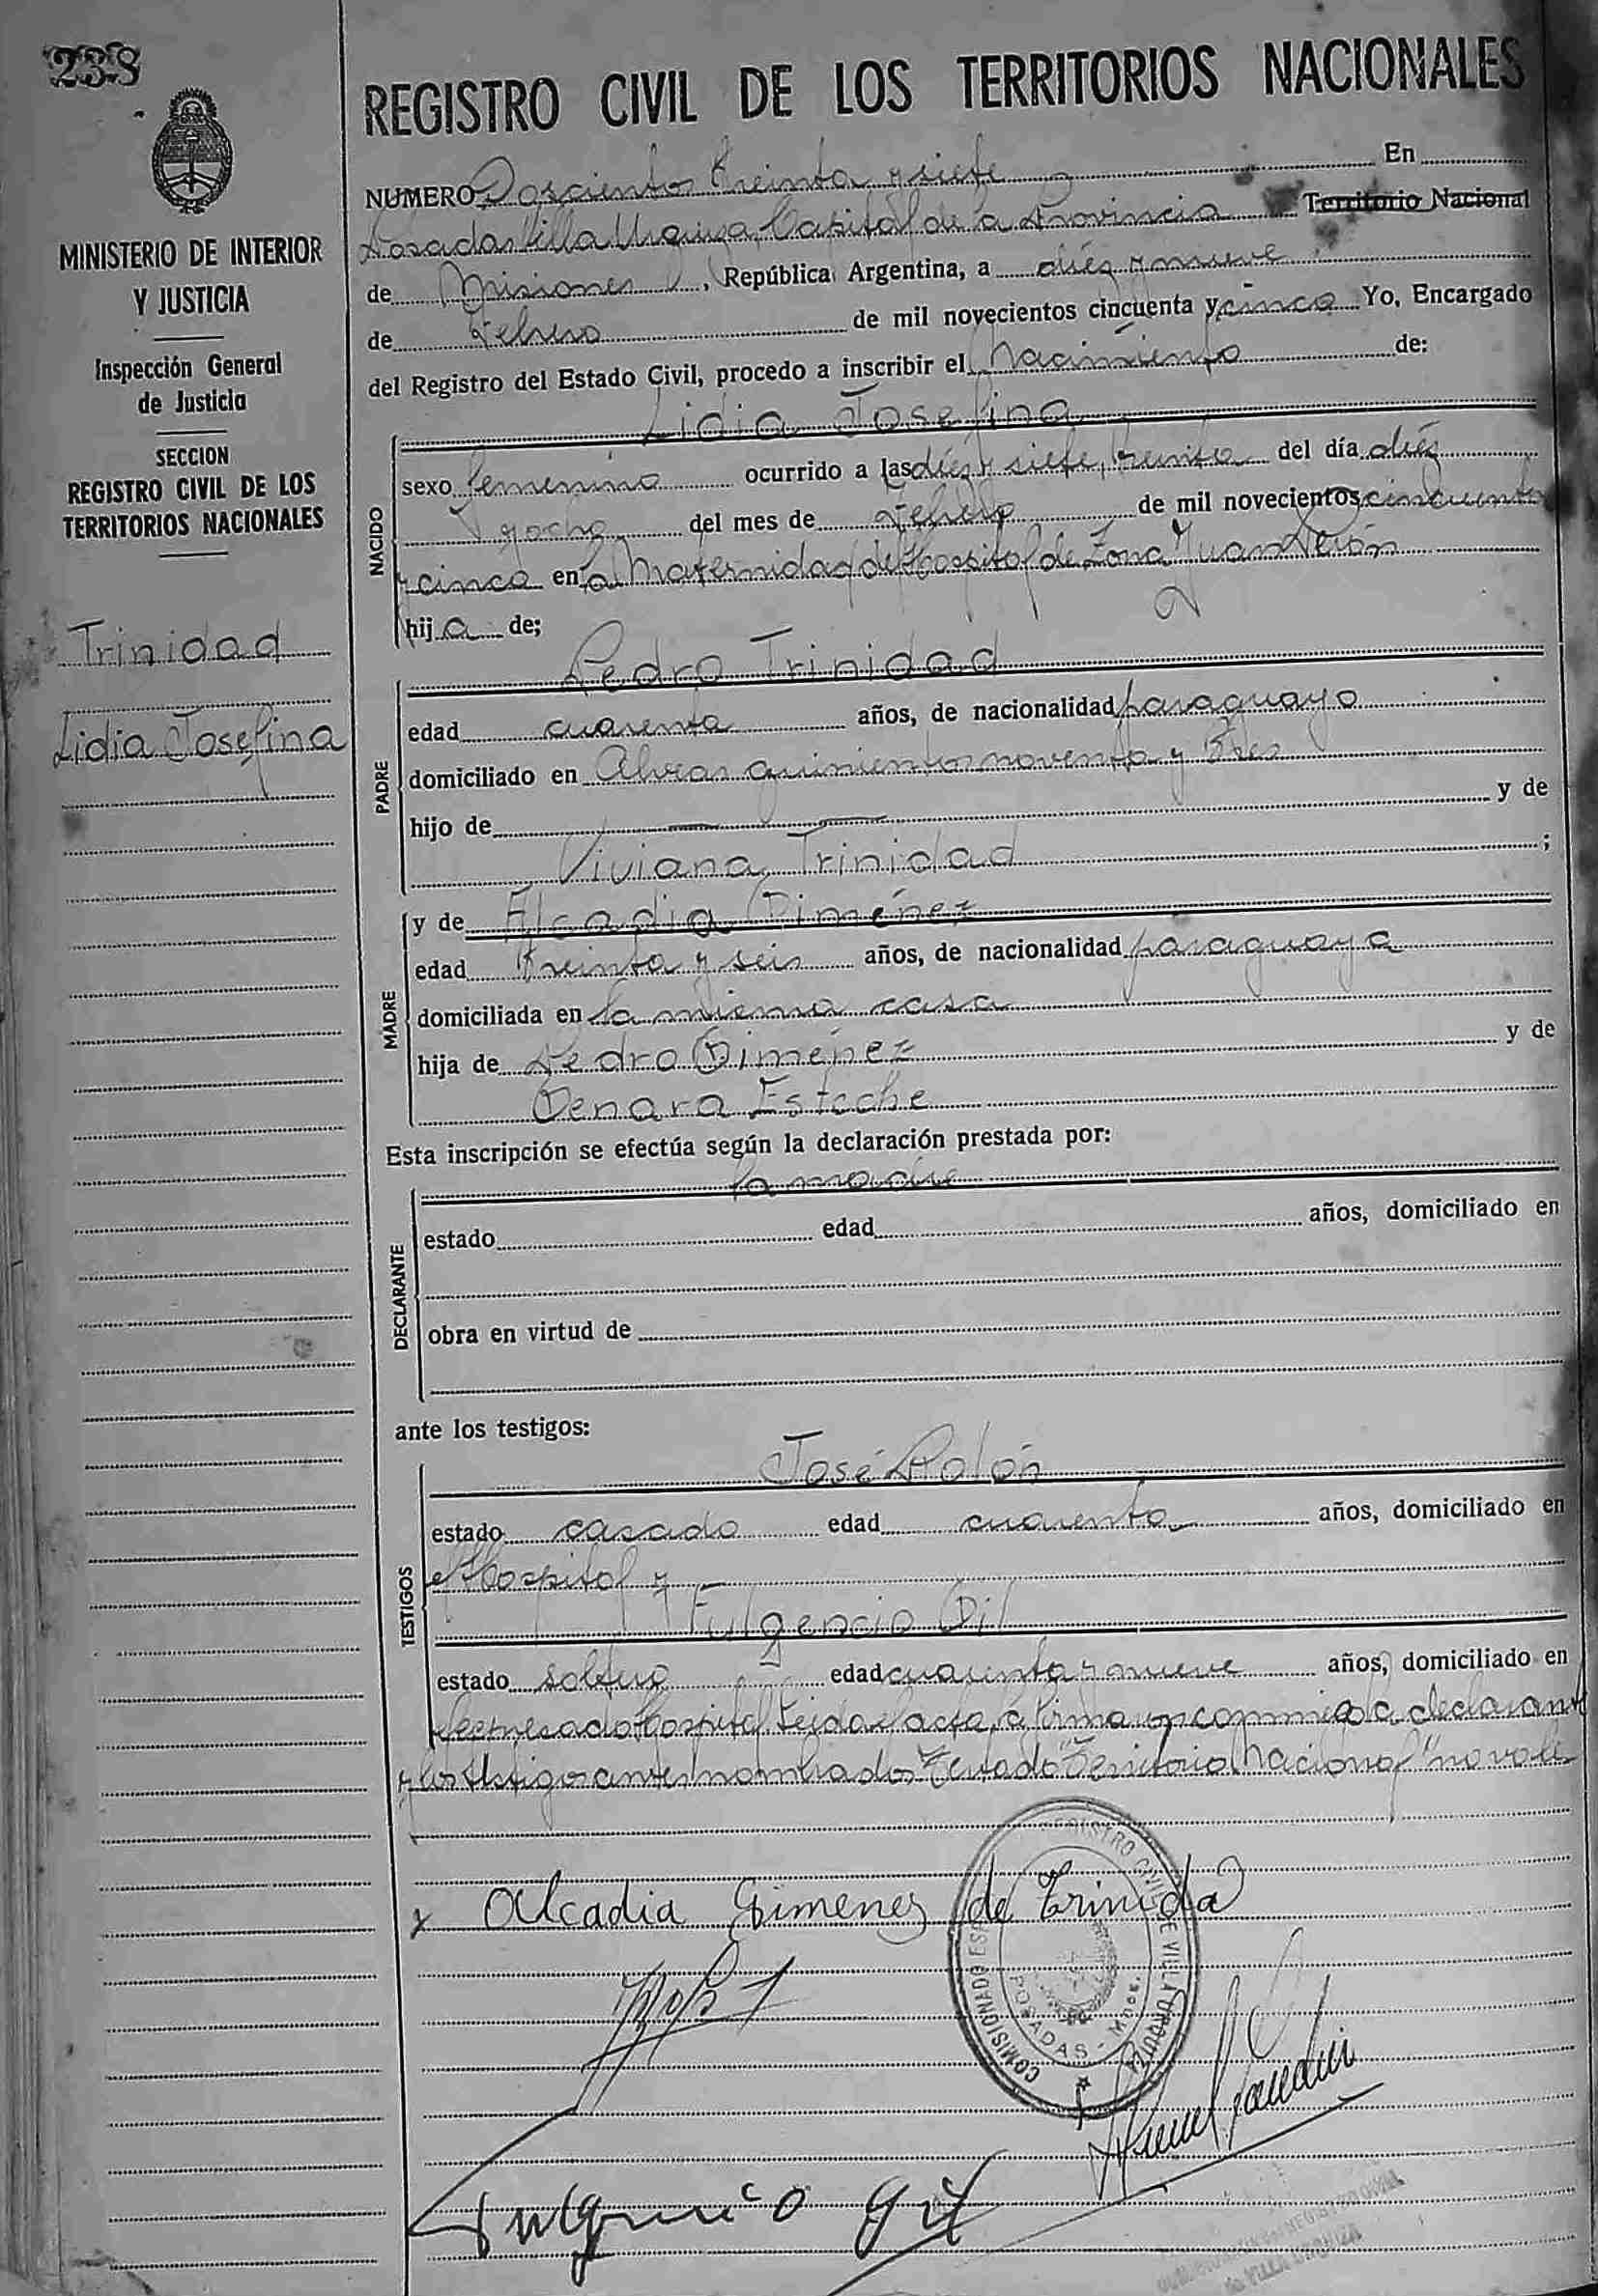 238
REGISTRO CIVIL DE LOS TERRITORIOS NACIONALES
MINISTERIO DE INTERIOR
Y JUSTICIA
Inspección General
de Justicia
SECCION
REGISTRO CIVIL DE LOS
TERRITORIOS NACIONALES
Trinidad
Lidia Josefina
NUMERO Doscientos treinta y siete En
Posadas Villa Urquiza, Capital de la Provincia Territorio Nacional
de Misiones, República Argentina, a diéz y nueve
de Febrero de mil novecientos cincuenta y cinco Yo, Encargado
del Registro del Estado Civil, procedo a inscribir el Nacimiento de:
NACIDO
Lidia Josefina
sexo femenino ocurrido a las diéz y siete, treinta del día diéz
y ocho del mes de Febrero de mil novecientos cincuenta
y cinco en la Maternidad del Hospital de Zona Juan Perón
hija de;
PADRE
Pedro Trinidad
edad cuarenta años, de nacionalidad paraguayo
domiciliado en Alvear quinientos noventa y tres
hijo de — — y de
Viviana Trinidad ;
MADRE
y de Alcadia Giménez
edad treinta y seis años, de nacionalidad paraguaya
domiciliada en la misma casa
hija de Pedro Giménez y de
Genara Esteche
Esta inscripción se efectúa según la declaración prestada por:
DECLARANTE
la madre
estado edad años, domiciliado en
obra en virtud de
ante los testigos:
TESTIGOS
José Rolón
estado casado edad cuarenta años, domiciliado en
el Hospital y
Fulgencio Gil
estado soltero edad cuarenta y nueve años, domiciliado en
el expresado Hospital. Leida el acta, la firmaron conmigo la declarante
y los testigos antes nombrados. Testado "Territorio Nacional" no vale
x Alcadia Gimenez de Trinida
REGISTRO CIVIL DE VILLA URQUIZA
POSADAS - Mnes.
Fulgencio Gil
REGISTRO CIVIL
de VILLA URQUIZA